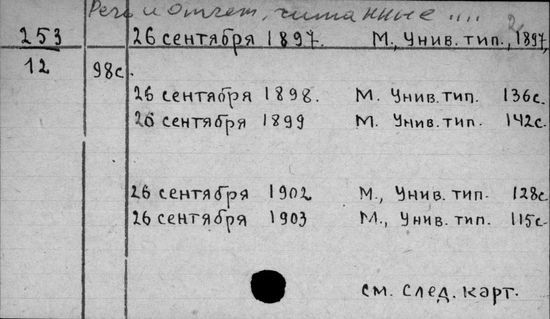 Речь и отчет, читанные ....
2
253 26 сентября 1897. М., Унив. тип., 1897,
12 98с.
26 сентября 1898. М. Унив. тип. 136с.
26 сентября 1899 М. Унив. тип. 142с.
26 сентября 1902 М., Унив. тип. 128с.
26 сентября 1903 М., Унив. тип. 115с.
см. след. карт.